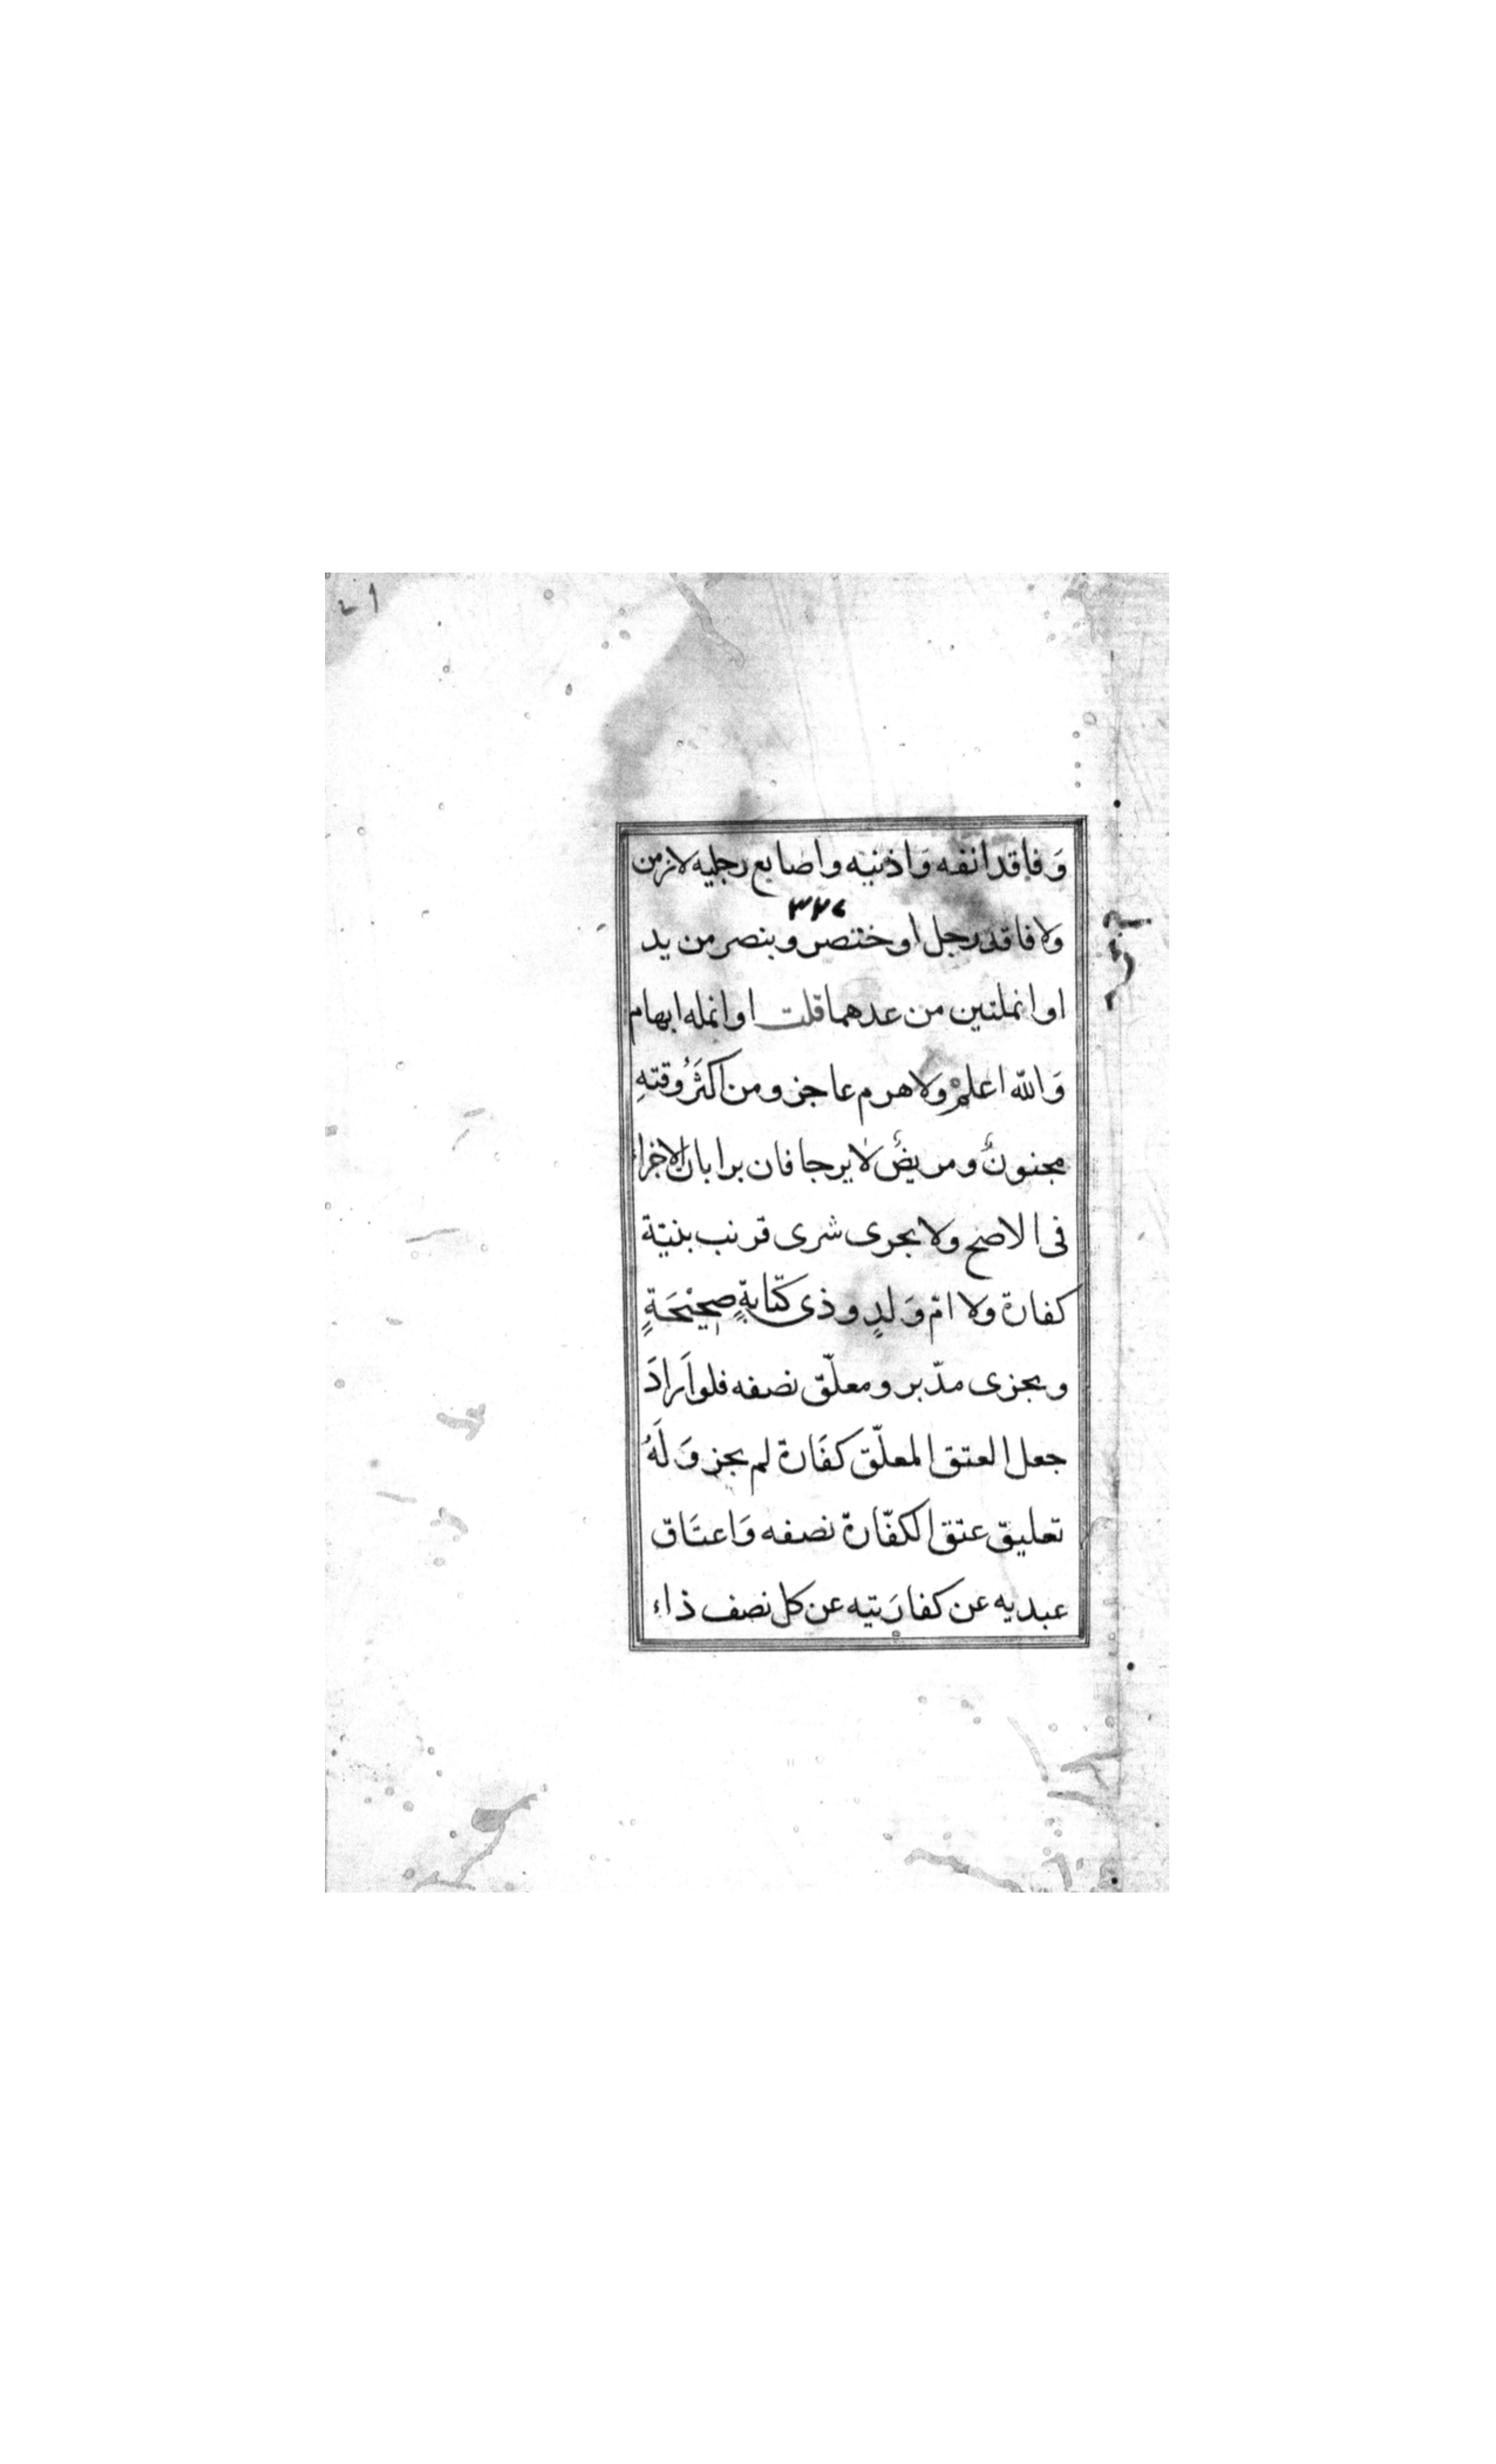 وَفاقد انفه وَاذنيه واصابع رجليه لا زمن
٣٢٧
ولا فاقد رجل او خنصر وبنصر من يد
او انملتين من عدهما قلت او انمله ابهام
وَالله اعلم ولا هرم عاجز ومن اكثَرُ وقتهِ
مجنونٌ ومريضٌ لا يرجا فان برا بان الاجزاء
فى الاصح ولا يجزى شرى قريب بنيّة
كفارة ولا امّ وَلدٍ وذى كتابةٍ صحيْحَةٍ
ويجزى مدّبر ومعلّق نصفه فلو اَرادَ
جعل العتق المعلّق كفَارة لم يجز وَلَهُ
تعليق عتق الكفّارة نصفه وَاعتَاق
عبديه عن كفارَتيه عن كل نصف ذاء